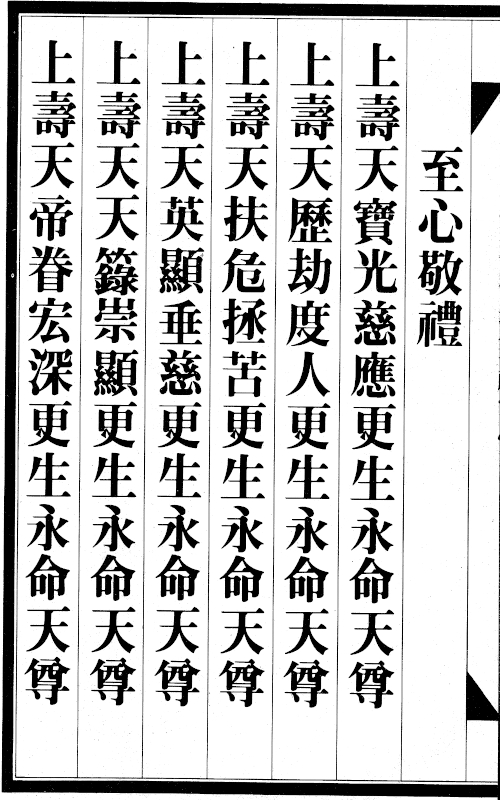 至心敬禮
上壽天寶光慈應更生永命天尊
上壽天歷劫度人更生永命天尊
上壽天扶危拯苦更生永命天尊
上壽天英顯垂慈更生永命天尊
上壽天天籙崇顯更生永命天尊
上壽天帝眷宏深更生永命天尊